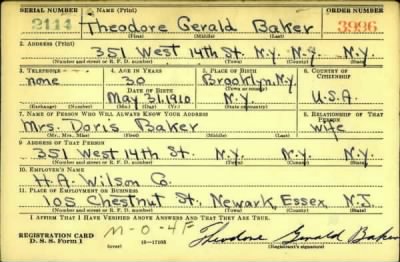 SERIAL NUMBER 1. NAME (Print) ORDER NUMBER
2114 Theodore Gerald Baker 3996
(First) (Middle) (Last)
2. ADDRESS (Print)
351 West 14th St. N.Y. N.Y. N.Y.
(Number and street or R. F. D. number) (Town) (County) (State)
3. TELEPHONE 4. AGE IN YEARS 5. PLACE OF BIRTH 6. COUNTRY OF CITIZENSHIP
none 30 Brooklyn, N.Y.
(Town or county)
DATE OF BIRTH
May 31, 1910 N.Y. U.S.A.
(Exchange) (Number) (Mo.) (Day) (Yr.) (State or country)
7. NAME OF PERSON WHO WILL ALWAYS KNOW YOUR ADDRESS 8. RELATIONSHIP OF THAT PERSON
Mrs. Doris Baker wife
(Mr., Mrs., Miss) (First) (Middle) (Last)
9. ADDRESS OF THAT PERSON
351 West 14th St. N.Y. N.Y. N.Y.
(Number and street or R. F. D. number) (Town) (County) (State)
10. EMPLOYER'S NAME
H.A. Wilson Co.
11. PLACE OF EMPLOYMENT OR BUSINESS
105 Chestnut St., Newark Essex, N.J.
(Number and street or R. F. D. number) (Town) (County) (State)
I AFFIRM THAT I HAVE VERIFIED ABOVE ANSWERS AND THAT THEY ARE TRUE.
REGISTRATION CARD M-O-4F Theodore Gerald Baker
D. S. S. FORM 1 (over) 16—17105 (Registrant's signature)